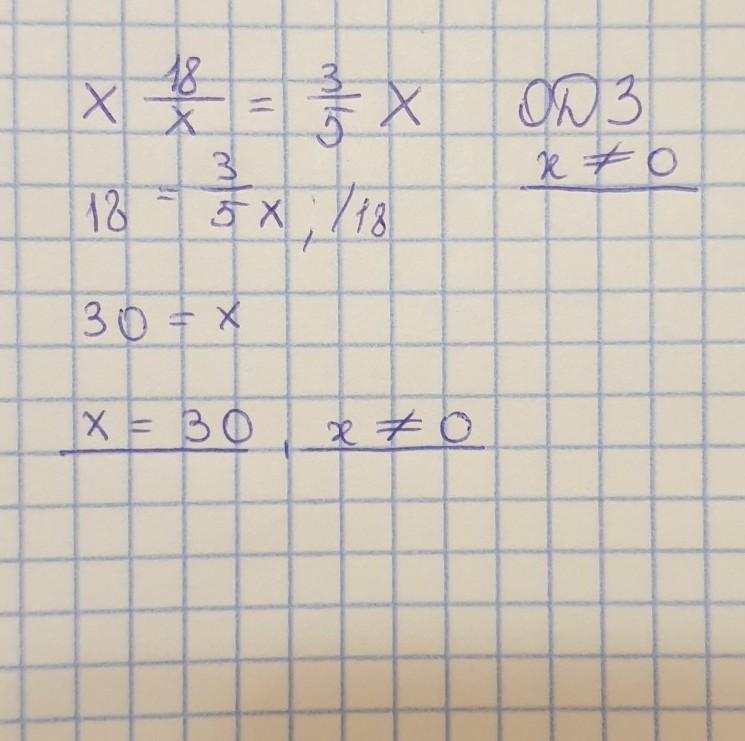 x 18/x = 3/5 x
ОДЗ
x ≠ 0
18 = 3/5 x , /18
30 = x
x = 30 , x ≠ 0